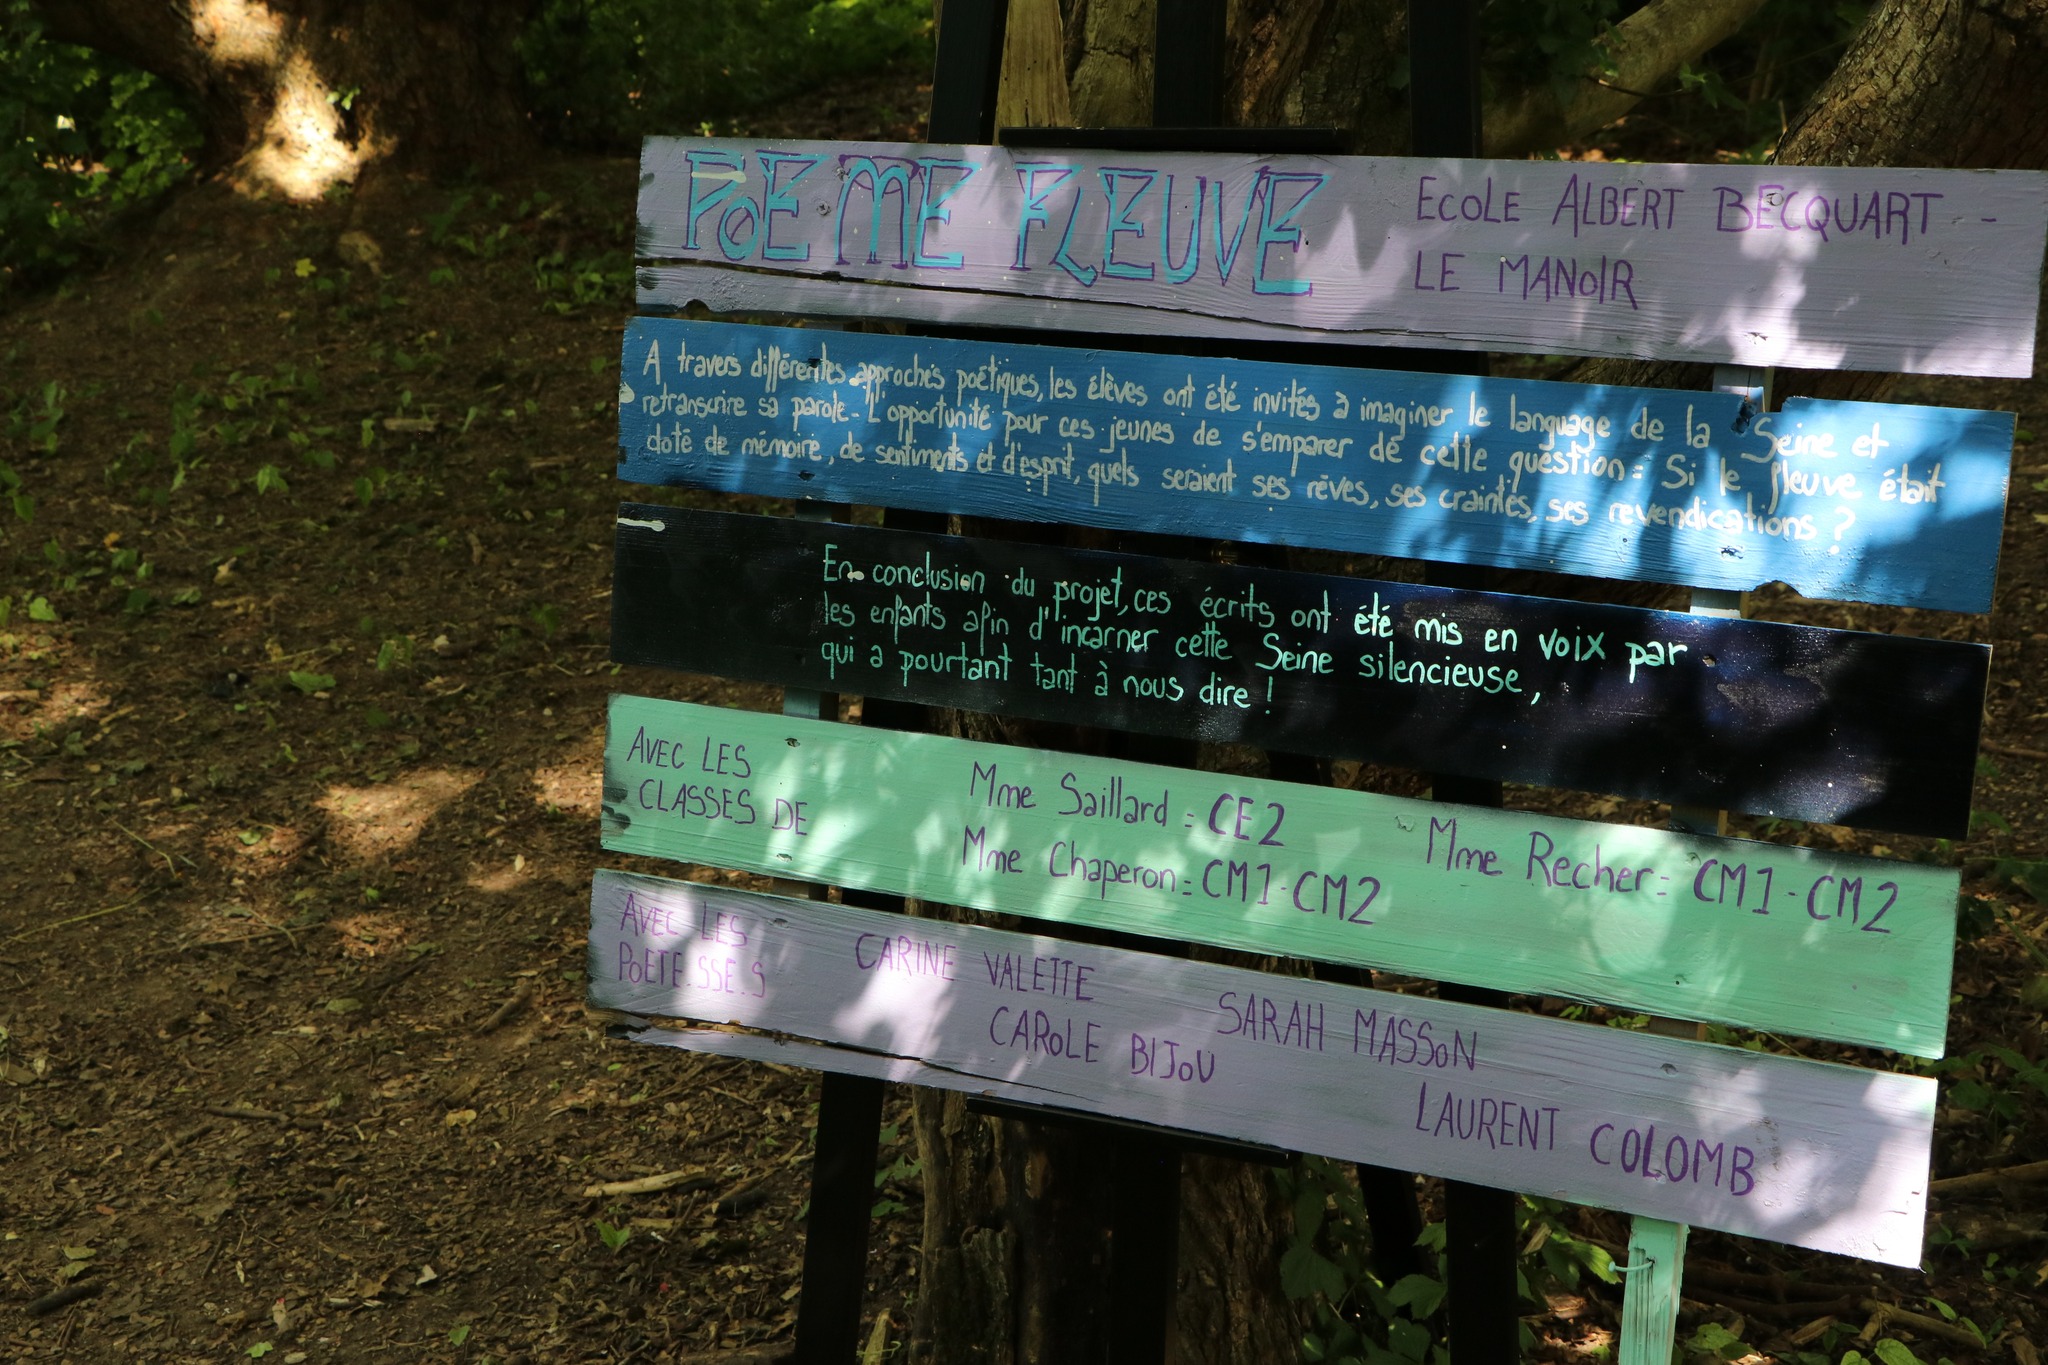 POEME FLEUVE
ECOLE ALBERT BECQUART -
LE MANOIR
A travers différentes approches poétiques, les élèves ont été invités à imaginer le language de la Seine et
retranscrire sa parole. L'opportunité pour ces jeunes de s'emparer de cette question : Si le fleuve était
doté de mémoire, de sentiments et d'esprit, quels seraient ses rêves, ses craintes, ses revendications ?
En conclusion du projet, ces écrits ont été mis en voix par
les enfants afin d'incarner cette Seine silencieuse,
qui a pourtant tant à nous dire !
AVEC LES
CLASSES DE
Mme Saillard : CE2
Mme Chaperon : CM1-CM2
Mme Recher : CM1-CM2
AVEC LES
POETE.SSE.S
CARINE VALETTE
CAROLE BIJOU
SARAH MASSON
LAURENT COLOMB